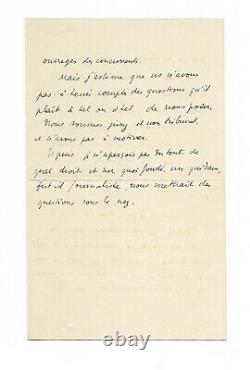 ouvrages des concurrents.
Mais j'estime que ns n'avons
pas à tenir compte des questions qu'il
plaît à tel ou à tel de nous poser.
Nous sommes jury et non tribunal,
et n'avons pas à motiver.
Et puis je n'aperçois pas du tout de
quel droit et sur quoi fondé, un quidam,
fût-il journaliste, nous mettrait des
questions sous le nez.
ebay.com